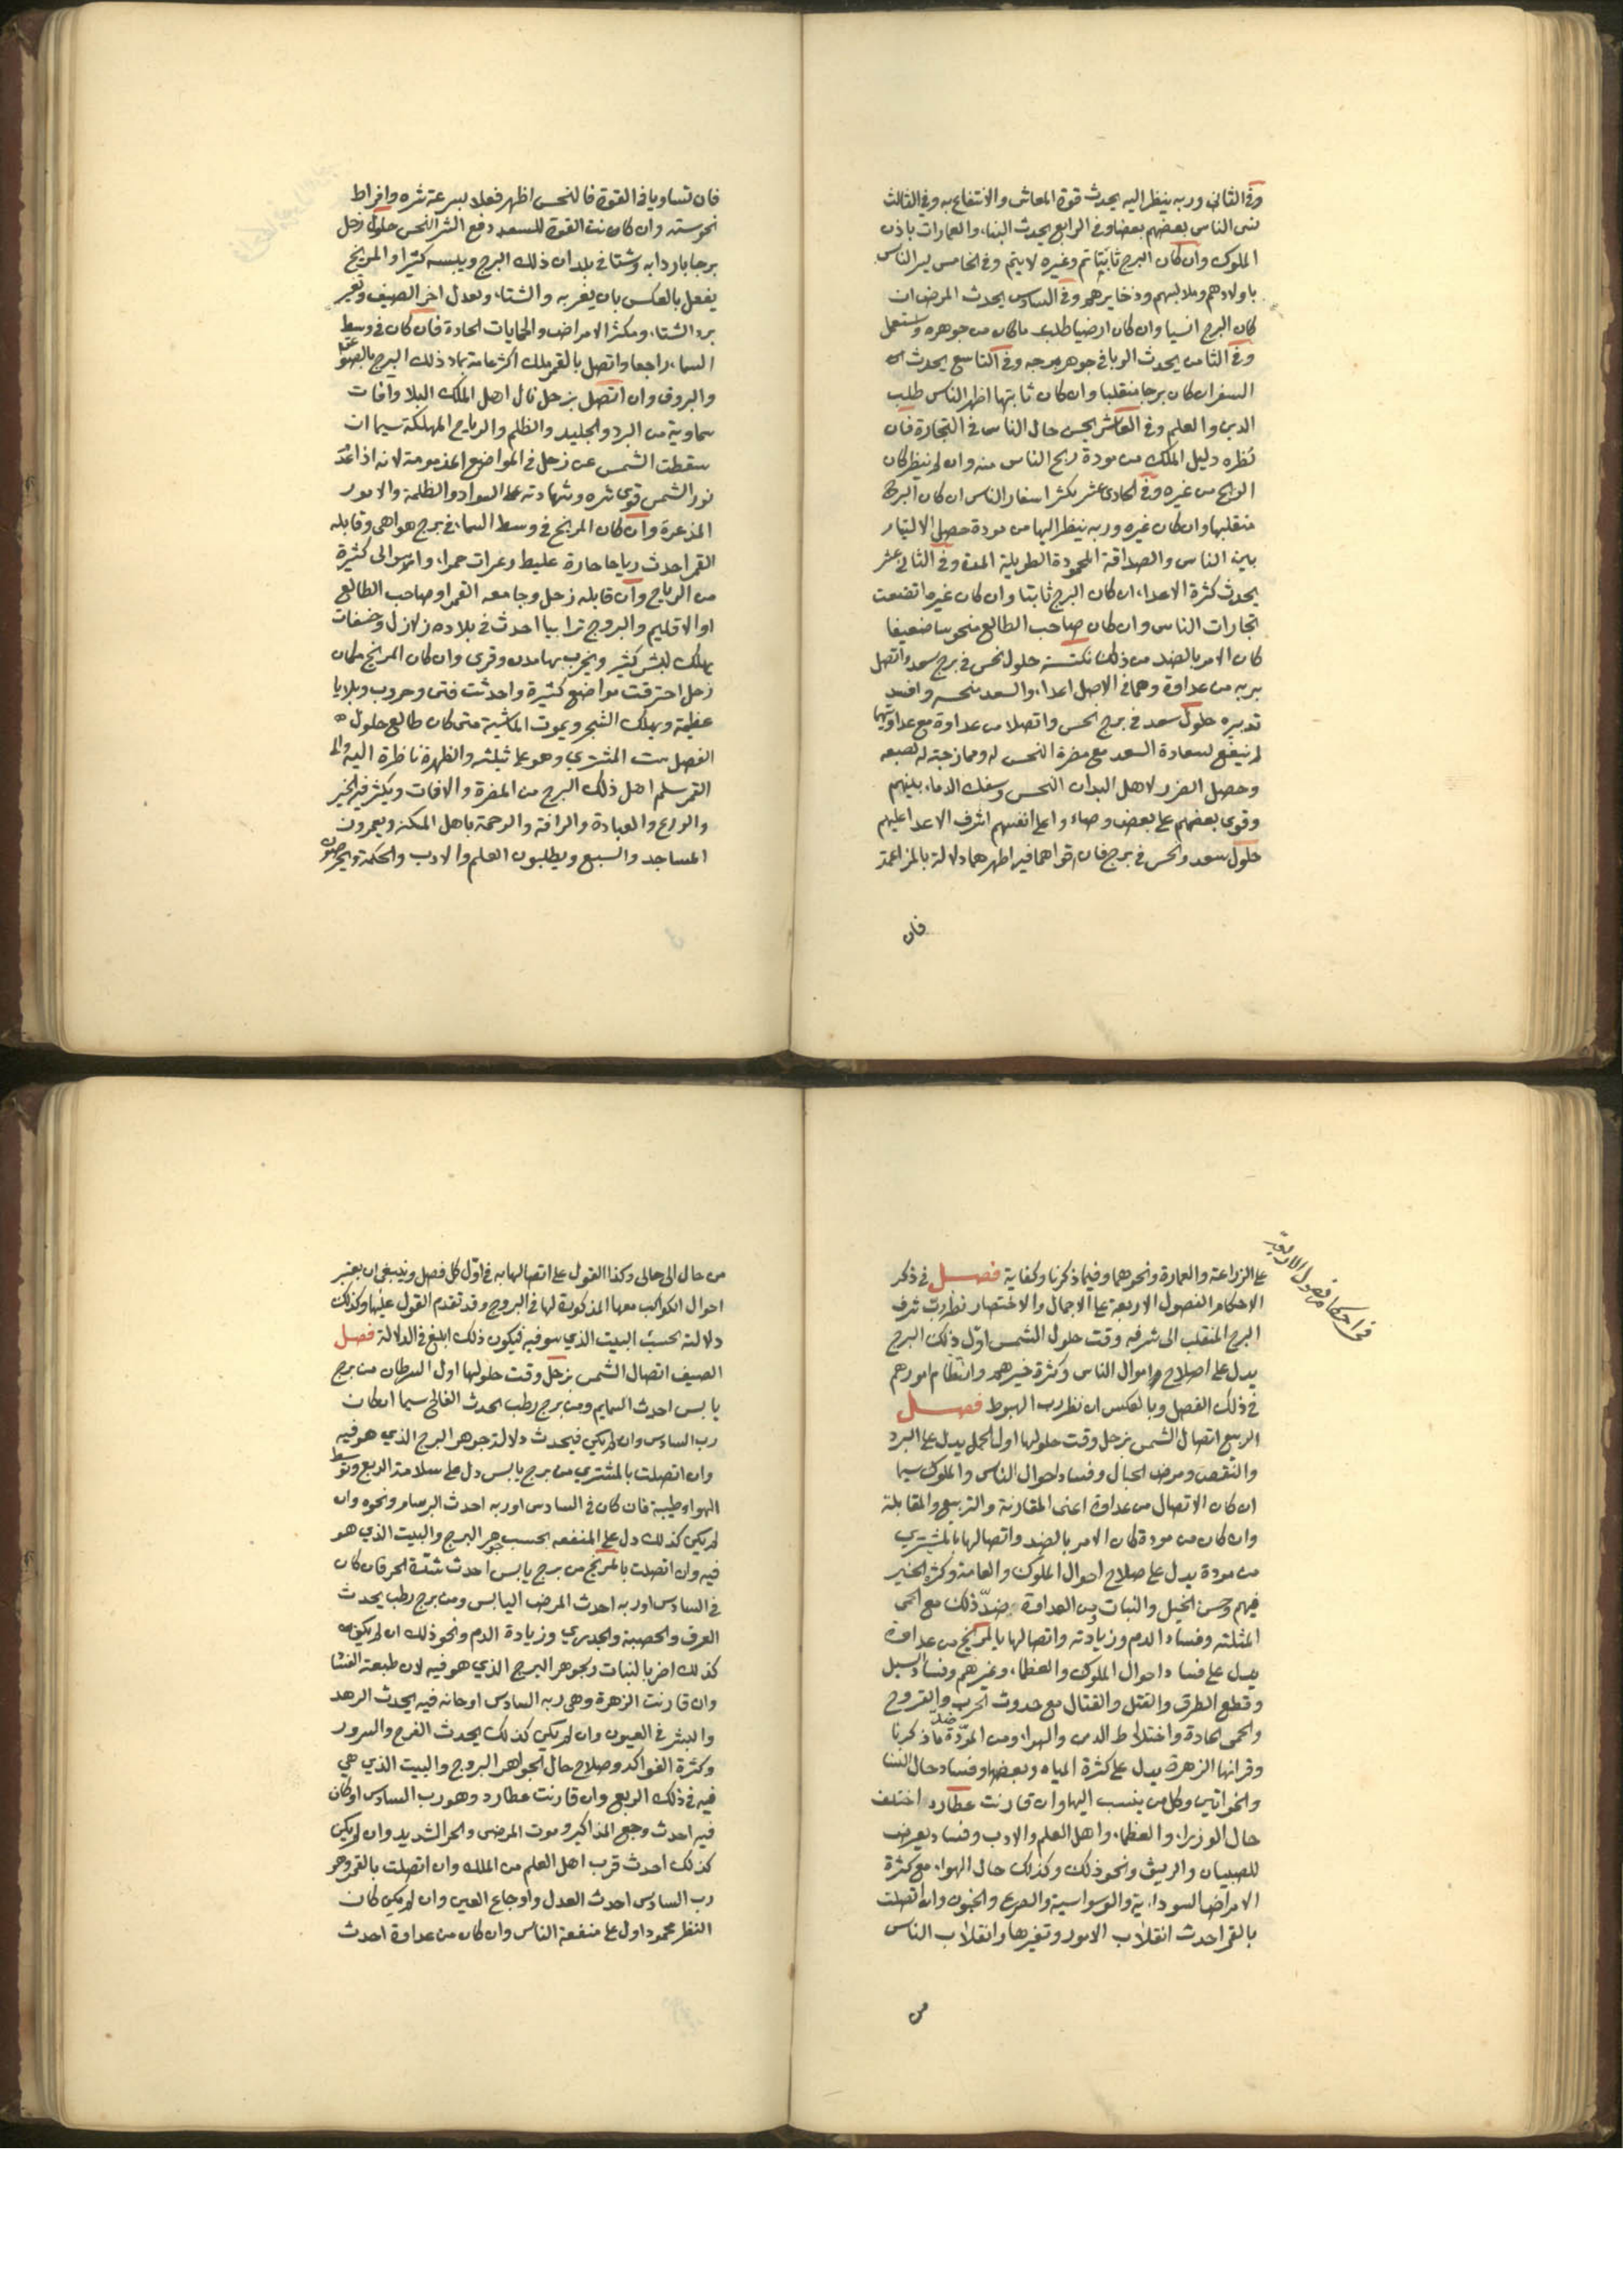 وفي الثاني وربه ينظر اليه يحدث قوة المعاش والانتفاع به وفي الثالث
الناس بعضهم بعضا وفي الرابع يحدث البناء والعمارات باذن
الملوك وان كان البرج ثابتا تم وغيره لا يتم وفي الخامس يسر الناس
باولادهم وملابسهم وذخايرهم وفي السادس يحدث المرض ان
كان البرج انسيا وان كان ارضيا طلب ما كان من جوهره واستعمل
وفي الثامن يحدث الوبا في جوهر برجه وفي التاسع يحدث
السفر ان كان برجا منقلبا وان كان ثابتا اظهر الناس طلب
الدين والعلم وفي العاشر يحسن حال الناس في التجارة فان
نظره دليل الملك من مودة ربح الناس منه وان لم ينظر كان
الربح من غيره وفي الحادي عشر يكثر اسفار الناس ان كان البرج
منقلبا وان كان غيره وربه ينظر اليها من مودة حصل
بين الناس والصداقة المحمودة الطويلة المدة وفي الثاني عشر
يحدث كثرة الاعداء ان كان البرج ثابتا وان كان غيره اتضعت
تجارات الناس وان كان صاحب الطالع منحوسا ضعيفا
كان الامر بالضد من ذلك نكتة حلول نحس في برج سعد واتصل
بربه من عداوة وهما في الاصل اعداء والسعد ينحسه وافسد
تدبيره حلول سعد في برج نحس واتصلا من عداوة مع عداوتهما
لم ينفع لسعادة السعد مع مضرة النحس له وممازجته لطبعه
وحصل الضرر لاهل البلدان النحس وسفك الدماء بينهم
وقوى بعضهم على بعض وعلى انفسهم اشرف الاعدا عليهم
حلول سعد ونحس في برج فان اقواهما فيه اظهرهما دلالة بالمزاعمة
فان
فان تساويا في القوة فالنحس اظهر فعلا بسرعة شره وافراط
نحوسته وان كانت القوة للسعد دفع الشر النحس حلول زحل
برجا باردا به وشتا في بلدان ذلك البرج ويبسه كثيرا والمريخ
يفعل بالعكس بان يضر به والشتاء وتعدل اخر الصيف وتغير
برد الشتاء ومكثر الامراض والحمايات الحادة فان كان في وسط
السماء راجعا واتصل بالقمر هلك اكثر عامة بلاد ذلك البرج بالصواعق
والبروق وان اتصل بزحل نال اهل الملك البلا وافات
سماوية من البرد والجليد والظلم والرياح المهلكة سيما ان
سقطت الشمس عن زحل في المواضع المذمومة لانه اذا عدم
نور الشمس قوى شره وشهادته على السواد والظلمة والامور
المذعرة وان كان المريخ في وسط السماء في برج هواءي وقابله
القمر احدث رياحا حارة غليظة وغبرات حمراء كثيرة
من الرياح وان قابله زحل وجامعه القمر او صاحب الطالع
او الاقليم والبروج ترابيا احدث في بلاده زلازل وخسفات
يهلك لبشر كثير ويخرب بها مدن وقرى وان كان المريخ مكان
زحل احترقت مواضع كثيرة واحدثت فتن وحروب وبلايا
عظيمة ويهلك الشجر ويموت الماشية متى كان طالع حلول
الفصل بيت المشتري وهو على تثليثه والظهرة ناظرة اليه والى
القمر سلم اهل ذلك البرج من المضرة والافات ويكثر فيه الخير
والورع والعبادة والرافة والرحمة باهل المسكنة ويعمرون
المساجد والبيع ويطلبون العلم والادب والحكمة ويحرصون
في احكام فصول الاربعة
على الزراعة والعمارة ونحوهما وفيما ذكرنا وكفاية فصل في ذكر
الاحكام الفصول الاربعة على الاجمال والاختصار نظر رب شرف
البرج المنقلب الى شرفه وقت حلول الشمس اول ذلك البرج
يدل على اصلاح اموال الناس وكثرة خيرهم وانتظام امورهم
في ذلك الفصل وبالعكس ان نظر رب الهبوط فصل
الربيع اتصال الشمس بزحل وقت حلولها اول الحمل يدل على البرد
والنقص ومرض الحبال وفساد احوال الناس والملوك سيما
ان كان الاتصال من عداوة اعنى المقارنة والتربيع والمقابلة
وان كان من مودة كان الامر بالضد واتصالها بالمشتري
من مودة يدل على صلاح احوال الملوك والعامة وكثرة الخير
فيهم وحسن الخيل والنبات ومن العداوة بضد ذلك مع الحمى
المثلثة وفساد الدم وزيادته واتصالها بالمريخ من عداوة
يدل على فساد احوال الملوك والعظماء وغيرهم وفساد السبل
وقطع الطرق والقتل والقتال مع حدوث الحرب والقروح
والحمى الحادة واختلاط الدس والهواء ومن المودة ضد ما ذكرنا
وقرانها الزهرة يدل على كثرة المياه وبعضها وفساد حال النسا
والخواتين وكل من ينسب اليها وان قارنت عطارد اختلف
حال الوزراء والعظماء واهل العلم والادب وفساد يعرض
للصبيان والريق ونحو ذلك وكذلك حال الهواء مع كثرة
الامراض السوداءية والوسواسية والصرع والجنون وان اتصلت
بالقمر احدث انقلاب الامور وتغيرها وانقلاب الناس
من
من حال الى حال وكذا القول على اتصالها به في اول كل فصل وينبغي ان يعتبر
احوال الكواكب معها المذكورة لها في البروج وقد تقدم القول عليها وكذلك
دلالته بحسب البيت الذي هو فيه فيكون ذلك ابلغ في الدلالة فصل
الصيف اتصال الشمس بزحل وقت حلولها اول السرطان من برج
يابس احدث السمايم ومن برج رطب يحدث الفالج سيما ان كان
رب السادس وان لم يكن فيحدث دلالة جوهر البرج الذي هو فيه
وان اتصلت بالمشتري من برج يابس دل على سلامة الربع وتوسط
الهواء وطيبة فان كان في السادس او ربه احدث البرسام ونحوه وان
لم يكن كذلك دل على المنفعه بحسب جوهر البرج والبيت الذي هو
فيه وان اتصلت بالمريخ من برج يابس احدث شدة الحر فان كان
في السادس او ربه احدث المرض اليابس ومن برج رطب يحدث
العرق والحصبة والجدري وزيادة الدم ونحو ذلك ان لم يكون
كذلك اضر بالنبات وبجوهر البرج الذي هو فيه لان طبعته الفنا
وان قارنت الزهرة وهى ربه السادس او حانه فيه يحدث الرمد
والبثر في العيون وان لم يكن كذلك يحدث الفرح والسرور
وكثرة الفواكه وصلاح حال الجواهر البروج والبيت الذي هي
فيه في ذلك الربع وان قارنت عطارد وهو رب السادس او كان
فيه احدث وجع المذاكير وموت المرضى والحر الشديد وان لم يكن
كذلك احدث قرب اهل العلم من الملك وان اتصلت بالقمر وهو
رب السادس احدث العدل واوجاع العين وان لم يكن كان
النظر محمود اول على منفعة الناس وان كان من عداوة احدث